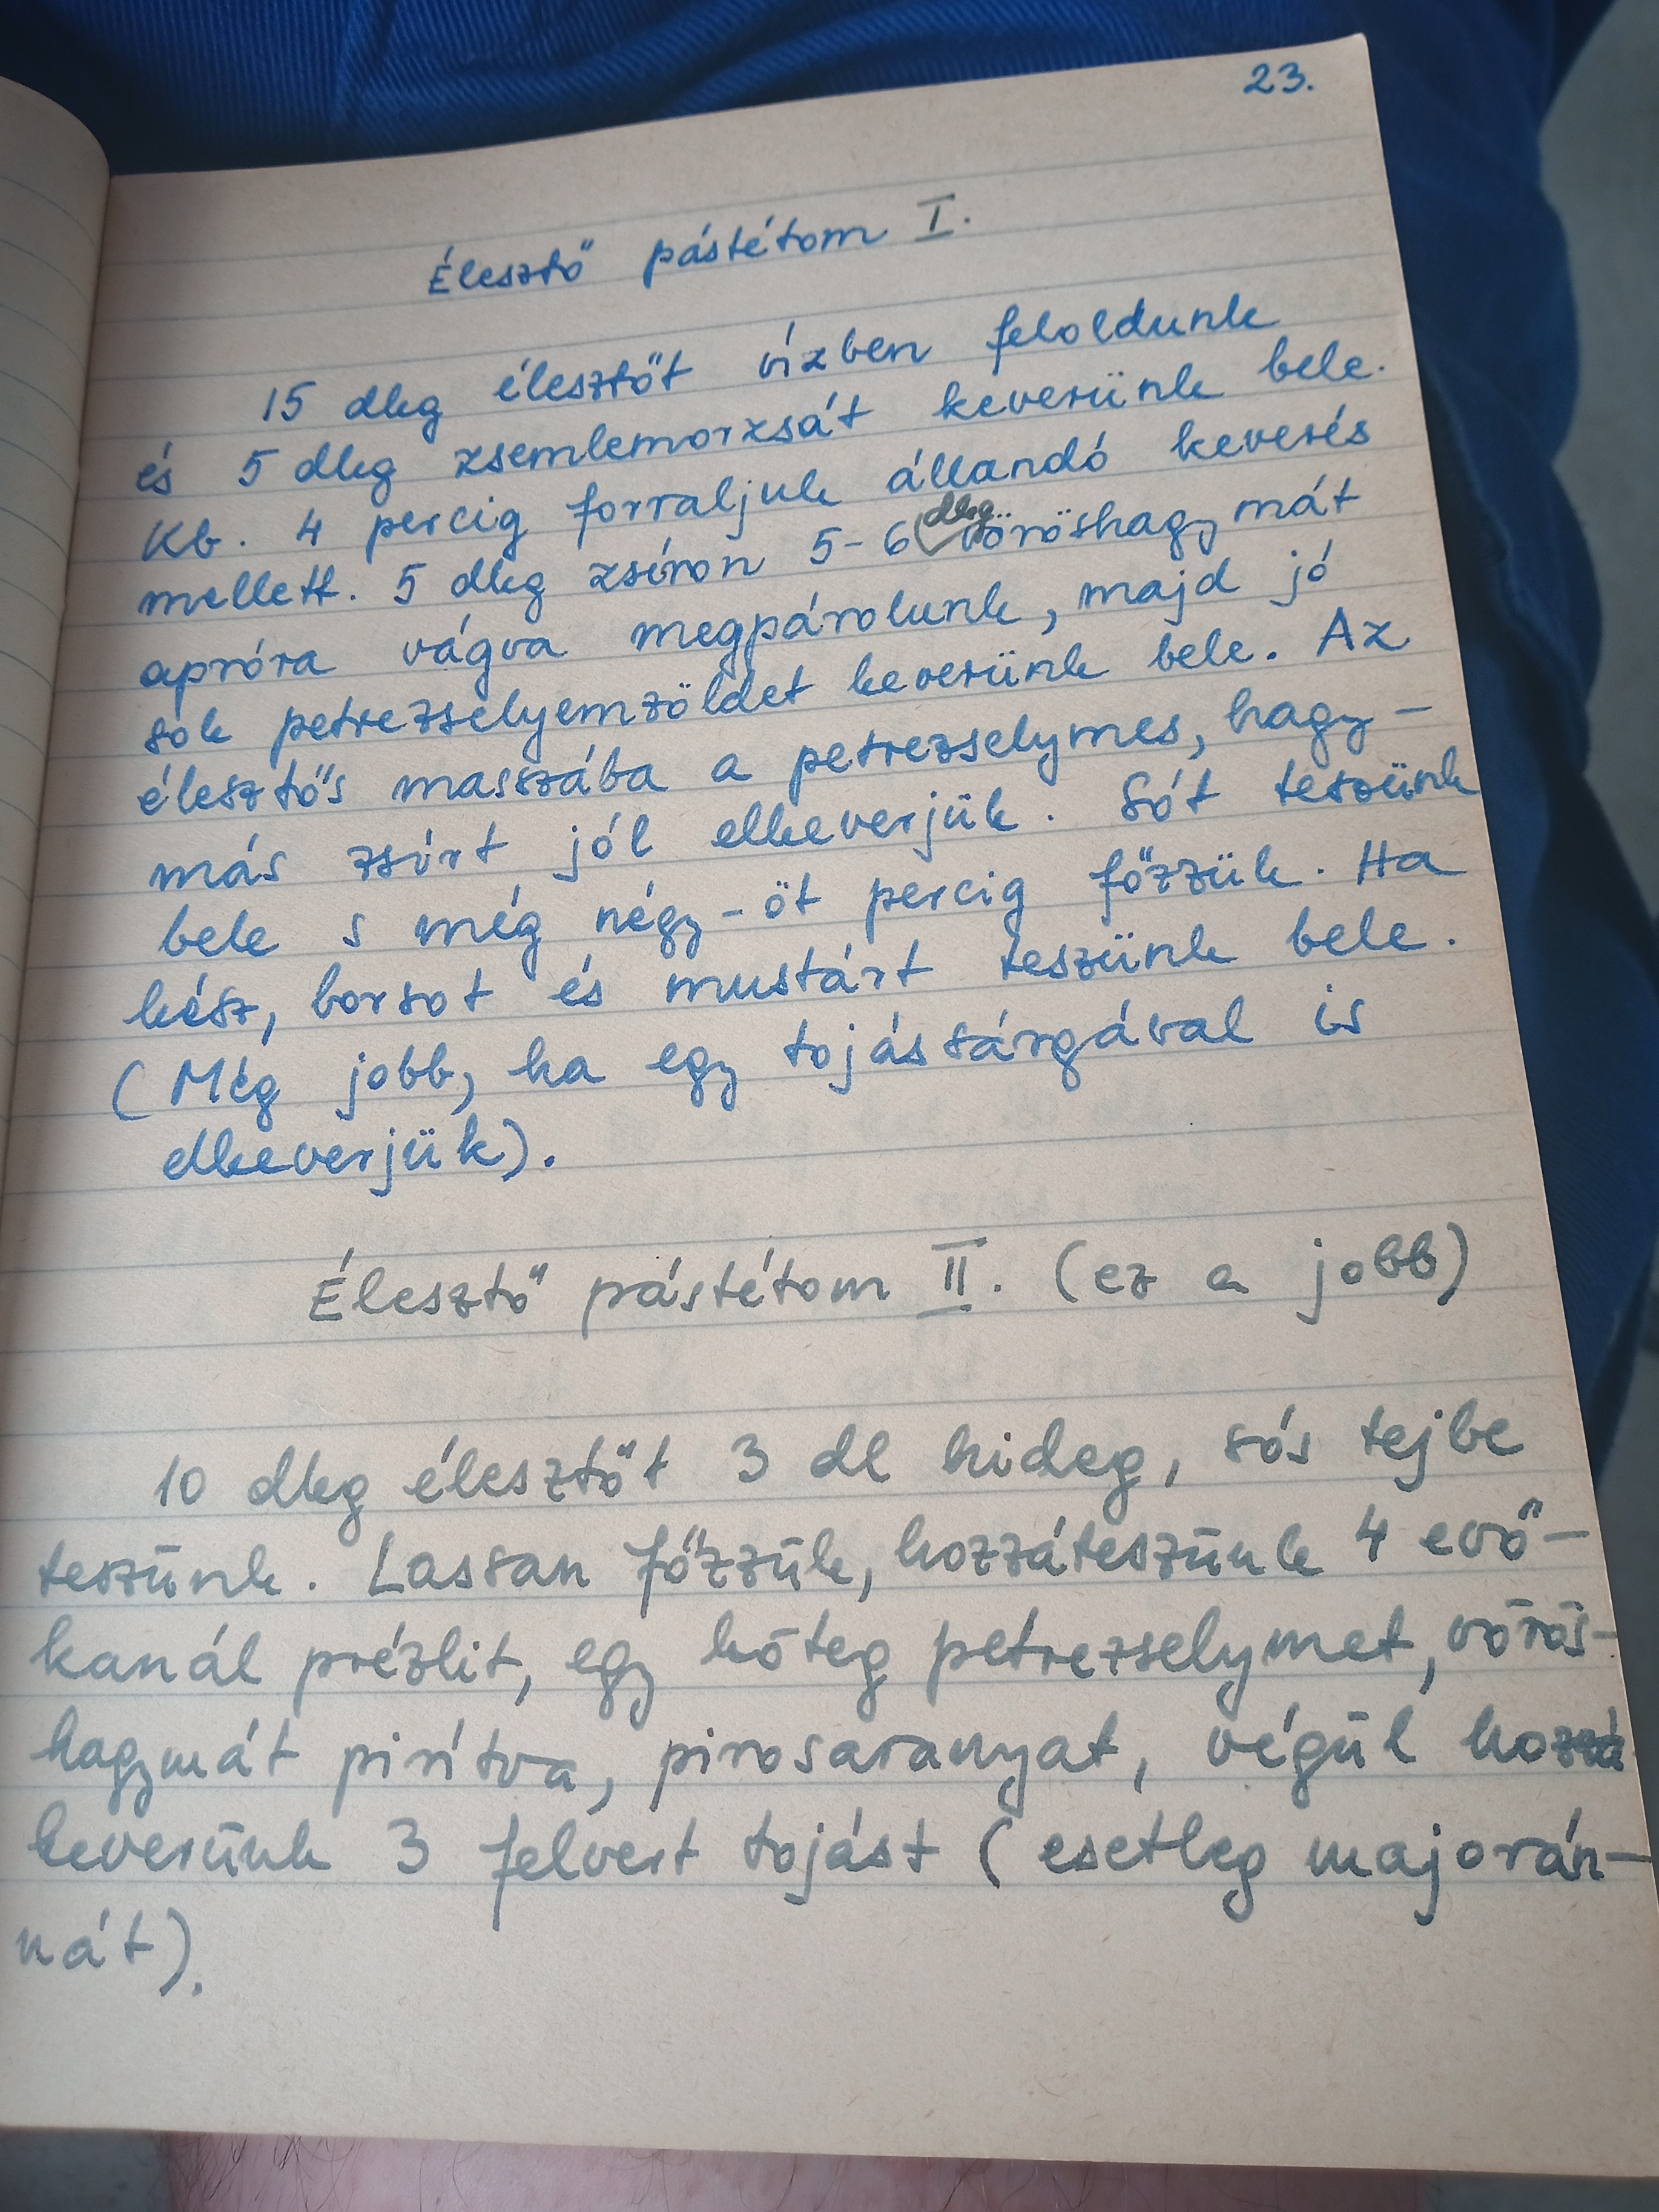 23.
Élesztő pástétom I.
15 dkg élesztőt vízben feloldunk
és 5 dkg zsemlemorzsát keverünk bele.
Kb. 4 percig forraljuk állandó keverés
mellett. 5 dkg zsíron 5-6 dkg vöröshagymát
apróra vágva megpárolunk, majd jó
sok petrezselyemzöldet keverünk bele. Az
élesztős masszába a petrezselymes, hagy-
más zsírt jól elkeverjük. Sót teszünk
bele s még négy-öt percig főzzük. Ha
kész, borsot és mustárt teszünk bele.
(Még jobb, ha egy tojássárgával is
elkeverjük).
Élesztő pástétom II. (ez a jobb)
10 dkg élesztőt 3 dl hideg, sós tejbe
teszünk. Lassan főzzük, hozzáteszünk 4 evő-
kanál prézlit, egy köteg petrezselymet, vörös-
hagymát pirítva, pirosaranyat, végül hozzá
keverünk 3 felvert tojást (esetleg majorán-
nát).